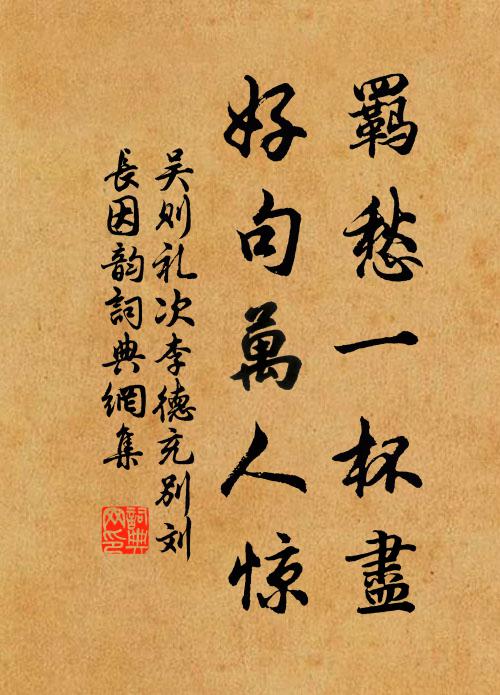 羈愁一杯盡
好句萬人惊
吴则礼次李德充别刘
長因韵詞典網集
詞典網印